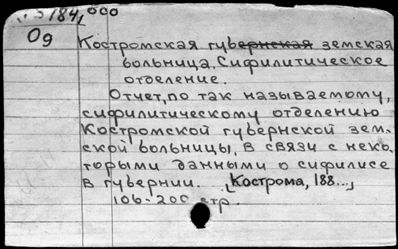 184,000
Од
Костромская губернская земская
больница. Сифилитическое
отделение.
Отчет, по так называемому,
сифилитическому отделению
Костромской губернской зем-
ской больницы, в связи с неко-
торыми данными о сифилисе
в губернии. [Кострома, 188...]
106-200 стр.